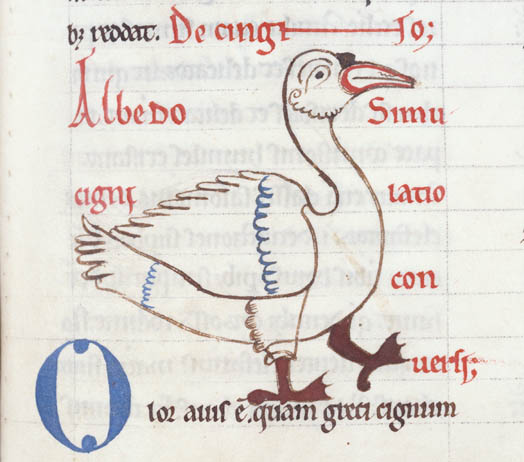 bȝ reddat. De cingi io;
Albedo Simu
cigni latio
con
uersi;
Olor auis ē. quam greci cignum